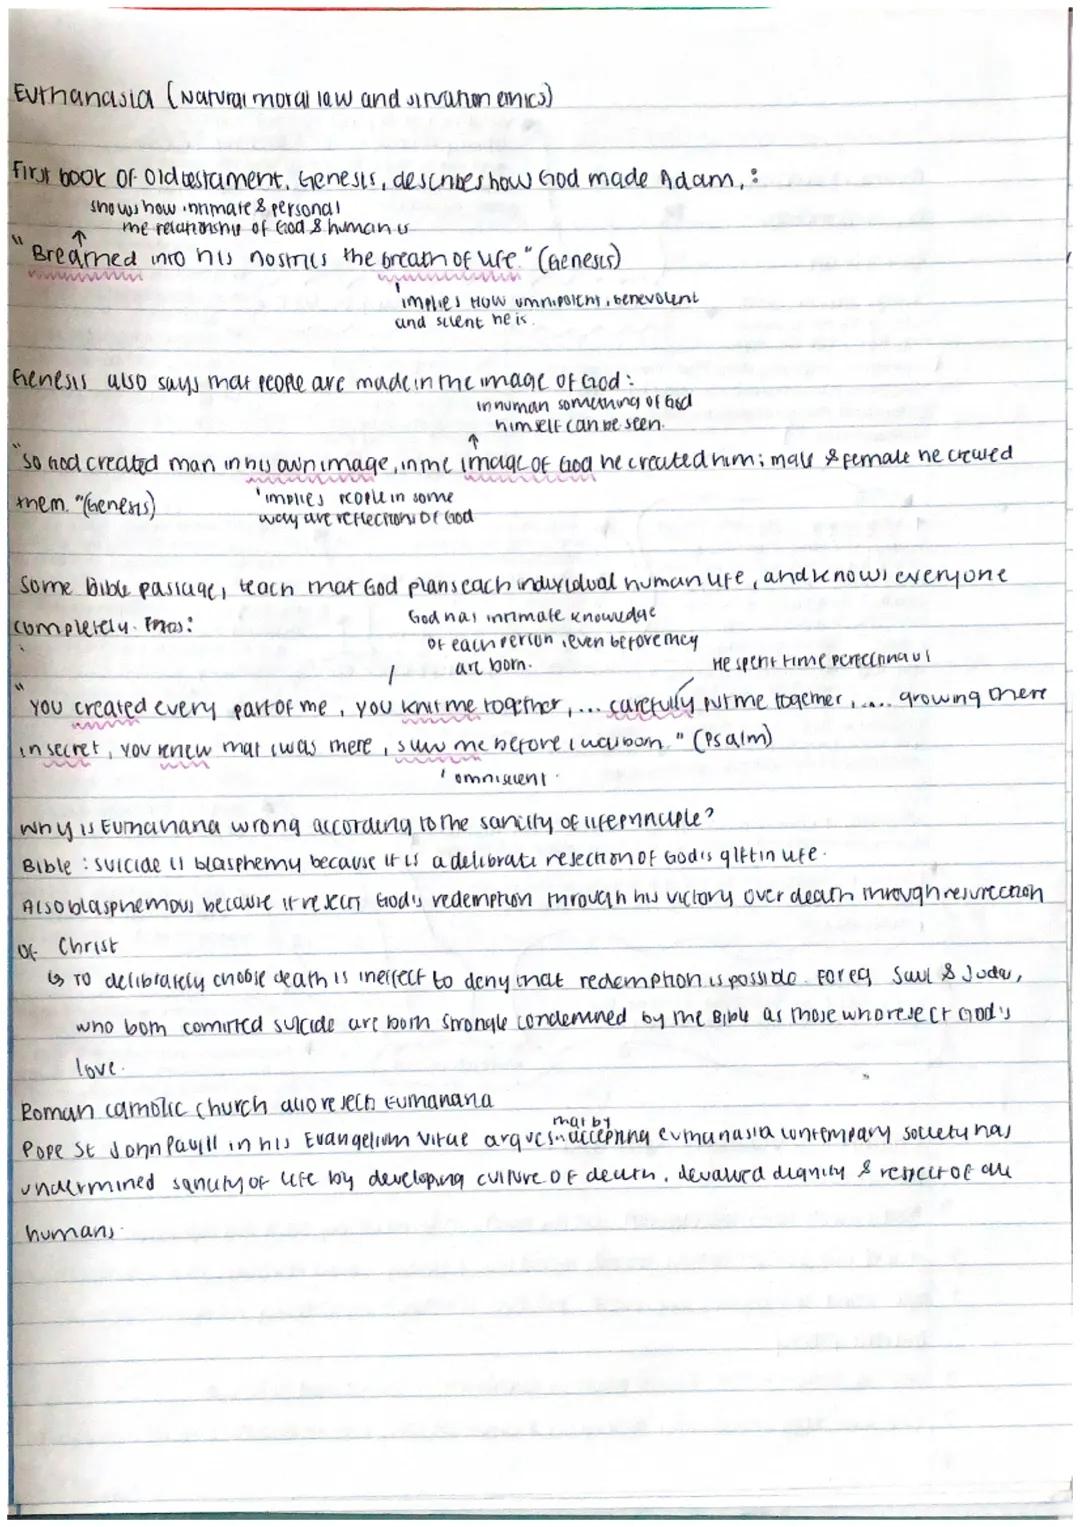 Euthanasia (Natural moral law and situation ethics)
First book of Old testament, Genesis, describes how God made Adam, :
shows how intimate & personal
the relationship of God & human is
"Breathed into his nostrils the breath of life." (Genesis)
implies How omnipotent, benevolent
and he is.
Genesis also says that people are made in the image of God:
in human something of God
himself can be seen.
"So God created man in his own image, in the image of God he created him; male & female he created
them. "(Genesis)
implies people in some
way are reflections of God
Some Bible passages teach that God plans each individual human life, and knows everyone
completely.
God has intimate knowledge
of each person, even before they
are born.
He spent time perfecting us
"You created every part of me, you knit me together, ... carefully put me together, .... growing there
in secret, you knew that I was there, saw me before I was born." (Psalm)
omniscient.
Why is Euthanasia wrong according to the sanctity of life principle?
Bible : suicide is blasphemy because it is a deliberate rejection of God's gift in life.
Also blasphemous because it reject God's redemption through his victory over death through resurrection
of Christ
↳ To delibrately choose death is ineffect to deny that redemption is possible. For eg Saul & Judas,
who both comitted suicide are both condemned by the Bible as those who reject God's
love.
Roman catholic church also rejects Euthanasia
that by
Pope St John Paul II in his Evangelium Vitae argues accepting euthanasia society has
undermined sanctity of life by developing culture of death, devalued dignity & respect of all
humans.